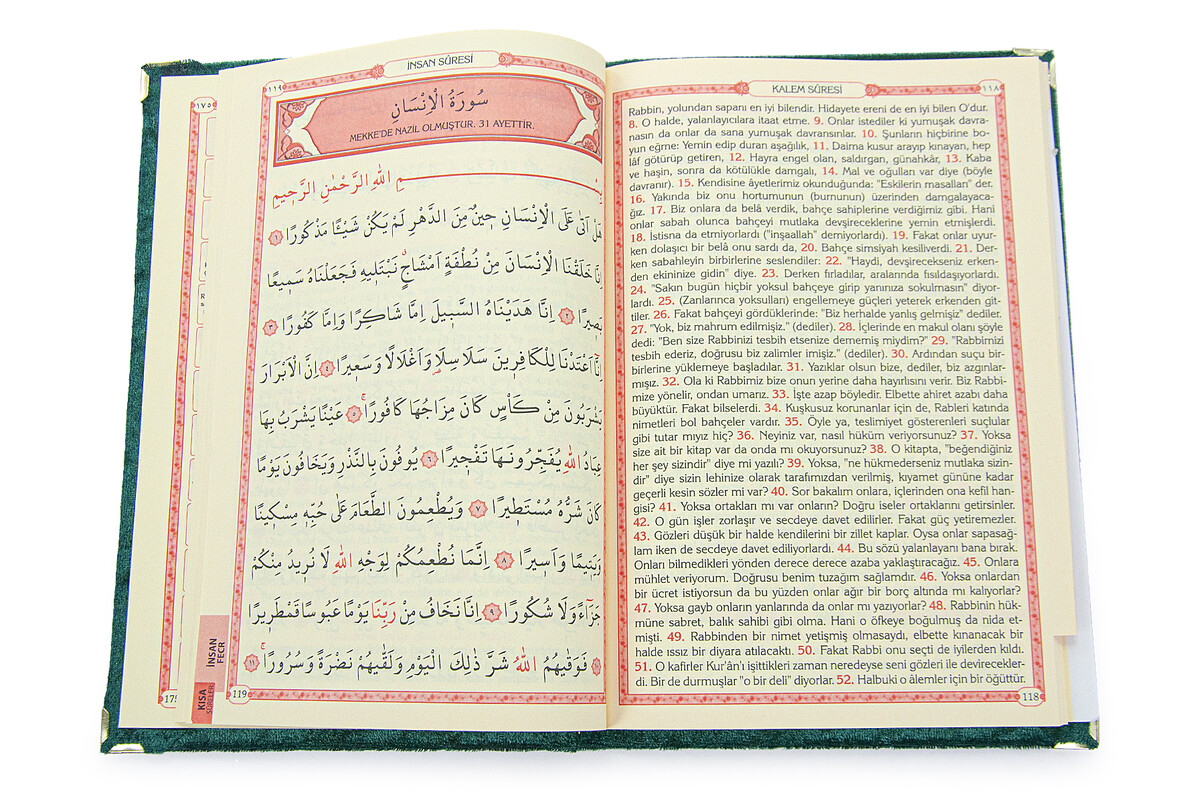 KALEM SÛRESİ
١١٨
Rabbin, yolundan sapanı en iyi bilendir. Hidayete ereni de en iyi bilen O'dur.
8. O halde, yalanlayıcılara itaat etme. 9. Onlar istediler ki yumuşak davra-
nasın da onlar da sana yumuşak davransınlar. 10. Şunların hiçbirine bo-
yun eğme: Yemin edip duran aşağılık, 11. Daima kusur arayıp kınayan, hep
lâf götürüp getiren, 12. Hayra engel olan, saldırgan, günahkâr, 13. Kaba
ve haşin, sonra da kötülükle damgalı, 14. Mal ve oğulları var diye (böyle
davranır). 15. Kendisine âyetlerimiz okunduğunda: "Eskilerin masalları" der.
16. Yakında biz onu hortumunun (burnunun) üzerinden damgalayaca-
ğız. 17. Biz onlara da belâ verdik, bahçe sahiplerine verdiğimiz gibi. Hani
onlar sabah olunca bahçeyi mutlaka devşireceklerine yemin etmişlerdi.
18. İstisna da etmiyorlardı ("inşaallah" demiyorlardı). 19. Fakat onlar uyur-
ken dolaşıcı bir belâ onu sardı da, 20. Bahçe simsiyah kesiliverdi. 21. Der-
ken sabahleyin birbirlerine seslendiler: 22. "Haydi, devşirecekseniz erken-
den ekininize gidin" diye. 23. Derken fırladılar, aralarında fısıldaşıyorlardı.
24. "Sakın bugün hiçbir yoksul bahçeye girip yanınıza sokulmasın" diyor-
lardı. 25. (Zanlarınca yoksulları) engellemeye güçleri yeterek erkenden git-
tiler. 26. Fakat bahçeyi gördüklerinde: "Biz herhalde yanlış gelmişiz" dediler.
27. "Yok, biz mahrum edilmişiz." (dediler). 28. İçlerinde en makul olanı şöyle
dedi: "Ben size Rabbinizi tesbih etsenize dememiş miydim?" 29. "Rabbimizi
tesbih ederiz, doğrusu biz zalimler imişiz." (dediler). 30. Ardından suçu bir-
birlerine yüklemeye başladılar. 31. Yazıklar olsun bize, dediler, biz azgınlar-
mışız. 32. Ola ki Rabbimiz bize onun yerine daha hayırlısını verir. Biz Rabbi-
mize yönelir, ondan umarız. 33. İşte azap böyledir. Elbette ahiret azabı daha
büyüktür. Fakat bilselerdi. 34. Kuşkusuz korunanlar için de, Rableri katında
nimetleri bol bahçeler vardır. 35. Öyle ya, teslimiyet gösterenleri suçlular
gibi tutar mıyız hiç? 36. Neyiniz var, nasıl hüküm veriyorsunuz? 37. Yoksa
size ait bir kitap var da onda mı okuyorsunuz? 38. O kitapta, "beğendiğiniz
her şey sizindir" diye mi yazılı? 39. Yoksa, "ne hükmederseniz mutlaka sizin-
dir" diye sizin lehinize olarak tarafımızdan verilmiş, kıyamet gününe kadar
geçerli kesin sözler mi var? 40. Sor bakalım onlara, içlerinden ona kefil han-
gisi? 41. Yoksa ortakları mı var onların? Doğru iseler ortaklarını getirsinler.
42. O gün işler zorlaşır ve secdeye davet edilirler. Fakat güç yetiremezler.
43. Gözleri düşük bir halde kendilerini bir zillet kaplar. Oysa onlar sapasağ-
lam iken de secdeye davet ediliyorlardı. 44. Bu sözü yalanlayanı bana bırak.
Onları bilmedikleri yönden derece derece azaba yaklaştıracağız. 45. Onlara
mühlet veriyorum. Doğrusu benim tuzağım sağlamdır. 46. Yoksa onlardan
bir ücret istiyorsun da bu yüzden onlar ağır bir borç altında mı kalıyorlar?
47. Yoksa gayb onların yanlarında da onlar mı yazıyorlar? 48. Rabbinin hük-
müne sabret, balık sahibi gibi olma. Hani o öfkeye boğulmuş da nida et-
mişti. 49. Rabbinden bir nimet yetişmiş olmasaydı, elbette kınanacak bir
halde ıssız bir diyara atılacaktı. 50. Fakat Rabbi onu seçti de iyilerden kıldı.
51. O kafirler Kur'ân'ı işittikleri zaman neredeyse seni gözleri ile devirecekler-
di. Bir de durmuşlar "o bir deli" diyorlar. 52. Halbuki o âlemler için bir öğüttür.
118
١١٩
İNSAN SÛRESİ
سُورَةُ الْاِنْسَانِ
MEKKE'DE NAZİL OLMUŞTUR. 31 AYETTİR.
بِسْمِ اللّٰهِ الرَّحْمٰنِ الرَّحٖيمِ
هَلْ اَتٰى عَلَى الْاِنْسَانِ حٖينٌ مِنَ الدَّهْرِ لَمْ يَكُنْ شَيْـًٔا مَذْكُورًا ١
اِنَّا خَلَقْنَا الْاِنْسَانَ مِنْ نُطْفَةٍ اَمْشَاجٍ نَبْتَلٖيهِ فَجَعَلْنَاهُ سَمٖيعًا
بَصٖيرًا ٢ اِنَّا هَدَيْنَاهُ السَّبٖيلَ اِمَّا شَاكِرًا وَاِمَّا كَفُورًا ٣
اِنَّٓا اَعْتَدْنَا لِلْكَافِرٖينَ سَلَاسِلَا وَاَغْلَالًا وَسَعٖيرًا ٤ اِنَّ الْاَبْرَارَ
يَشْرَبُونَ مِنْ كَأْسٍ كَانَ مِزَاجُهَا كَافُورًا ٥ عَيْنًا يَشْرَبُ بِهَا
عِبَادُ اللّٰهِ يُفَجِّرُونَهَا تَفْجٖيرًا ٦ يُوفُونَ بِالنَّذْرِ وَيَخَافُونَ يَوْمًا
كَانَ شَرُّهُ مُسْتَطٖيرًا ٧ وَيُطْعِمُونَ الطَّعَامَ عَلٰى حُبِّهٖ مِسْكٖينًا
وَيَتٖيمًا وَاَسٖيرًا ٨ اِنَّمَا نُطْعِمُكُمْ لِوَجْهِ اللّٰهِ لَا نُرٖيدُ مِنْكُمْ
جَزَٓاءً وَلَا شُكُورًا ٩ اِنَّا نَخَافُ مِنْ رَبِّنَا يَوْمًا عَبُوسًا قَمْطَرٖيرًا
١٠ فَوَقٰيهُمُ اللّٰهُ شَرَّ ذٰلِكَ الْيَوْمِ وَلَقّٰيهُمْ نَضْرَةً وَسُرُورًا ١١
119
İNSAN
FECR
KISA
SÛRELER
١٧٥
175